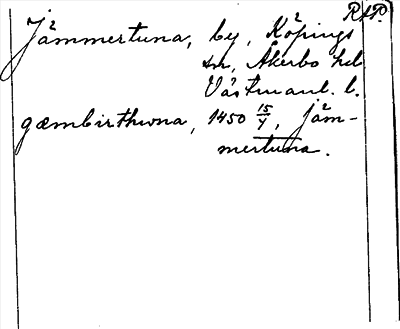 RAP.
Jämmertuna, by, Köpings
sn, Åkerbo hd
Västmanl. l.
gæmbirthwna, 1450 15/7, Jäm-
mertuna.